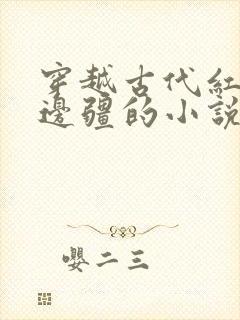 穿越古代紅
邊疆的小說
嚶二三